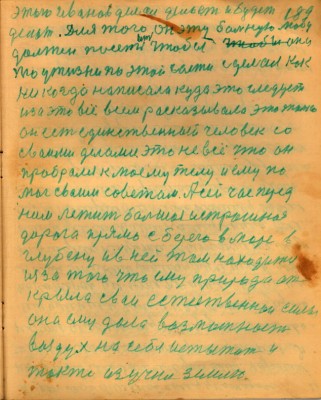 этого Иванов делал делает и будет 189
делат. Для того он эту балную
должен посети чтобы она
по жизни по этой части сделал как
никогда написала куда это следует
из за это всё всем расказывала это только
он ест единственный человек со
своими делами это не всё что он
пробрался к моему телу и ему по
мог своим советам. А сейчас перед
ним лежит болшая и страшная
дорога прямо с берега в море в
глубену и в ней там находится
из за того что ему природа от
крыла сваи естественнои силы
она ему дала возможность
воздух на себя испытат и
тоже изучил землю.